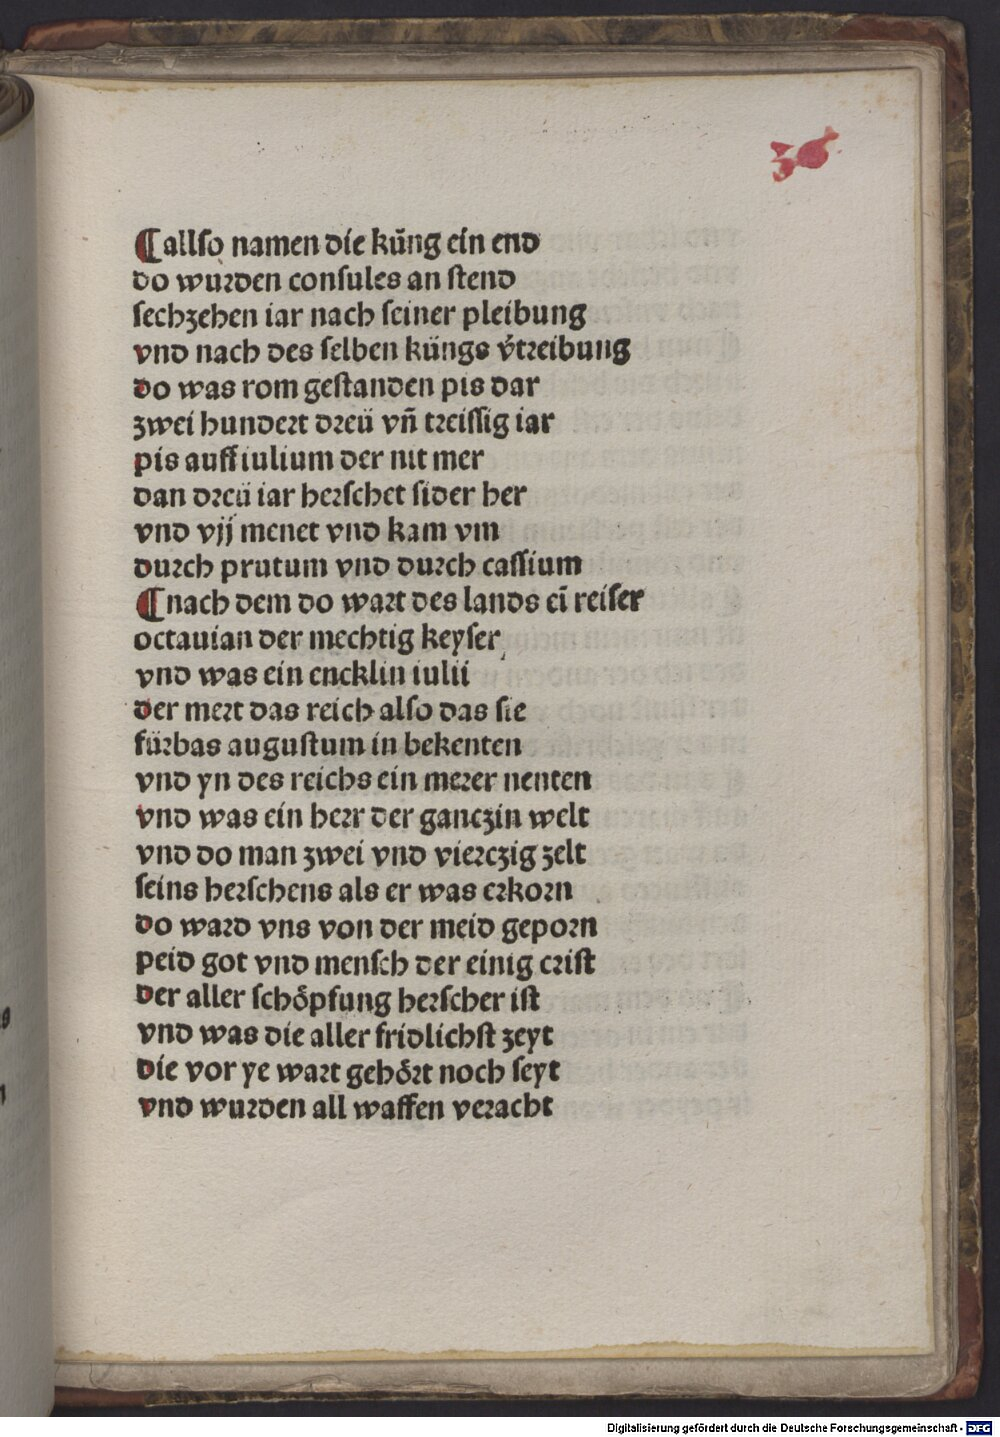 ¶allso namen die kŭng ein end
do wurden consules an stend
sechzehen iar nach seiner pleibung
vnd nach des selben küngs v́treibung
do was rom gestanden pis dar
zwei hundert dreü vñ treissig iar
pis auff iulium der nit mer
dan dreü iar herschet sider her
vnd vjj menet vnd kam vm
durch prutum vnd durch cassium
¶nach dem do wart des lands eī reiser
octauian der mechtig keyser
vnd was ein encklin iulii
der mert das reich also das sie
fürbas augustum in bekenten
vnd yn des reichs ein merer nenten
vnd was ein herr der ganczin welt
vnd do man zwei vnd vierczig zelt
seins herschens als er was erkorn
do ward vns von der meid geporn
peid got vnd mensch der einig crist
der aller schöpfung herscher ist
vnd was die aller fridlichst zeyt
die vor ye wart gehört noch seyt
vnd wurden all waffen veracht
Digitalisierung gefördert durch die Deutsche Forschungsgemeinschaft - DFG